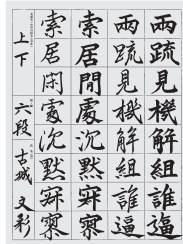 兩疏見機解組誰逼
兩疏見機解組誰逼
索居閒處沈默寂寥
索居閑處沈默寂寥
上下 六段 古城 文彩